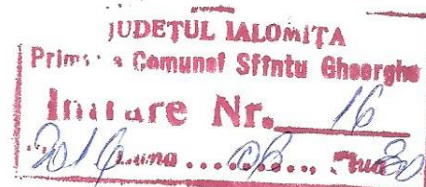 JUDEŢUL IALOMIŢA
Primăria Comunei Sfîntu Gheorghe
Intrare Nr. 16
2016 Luna ...06..., Ziua 30